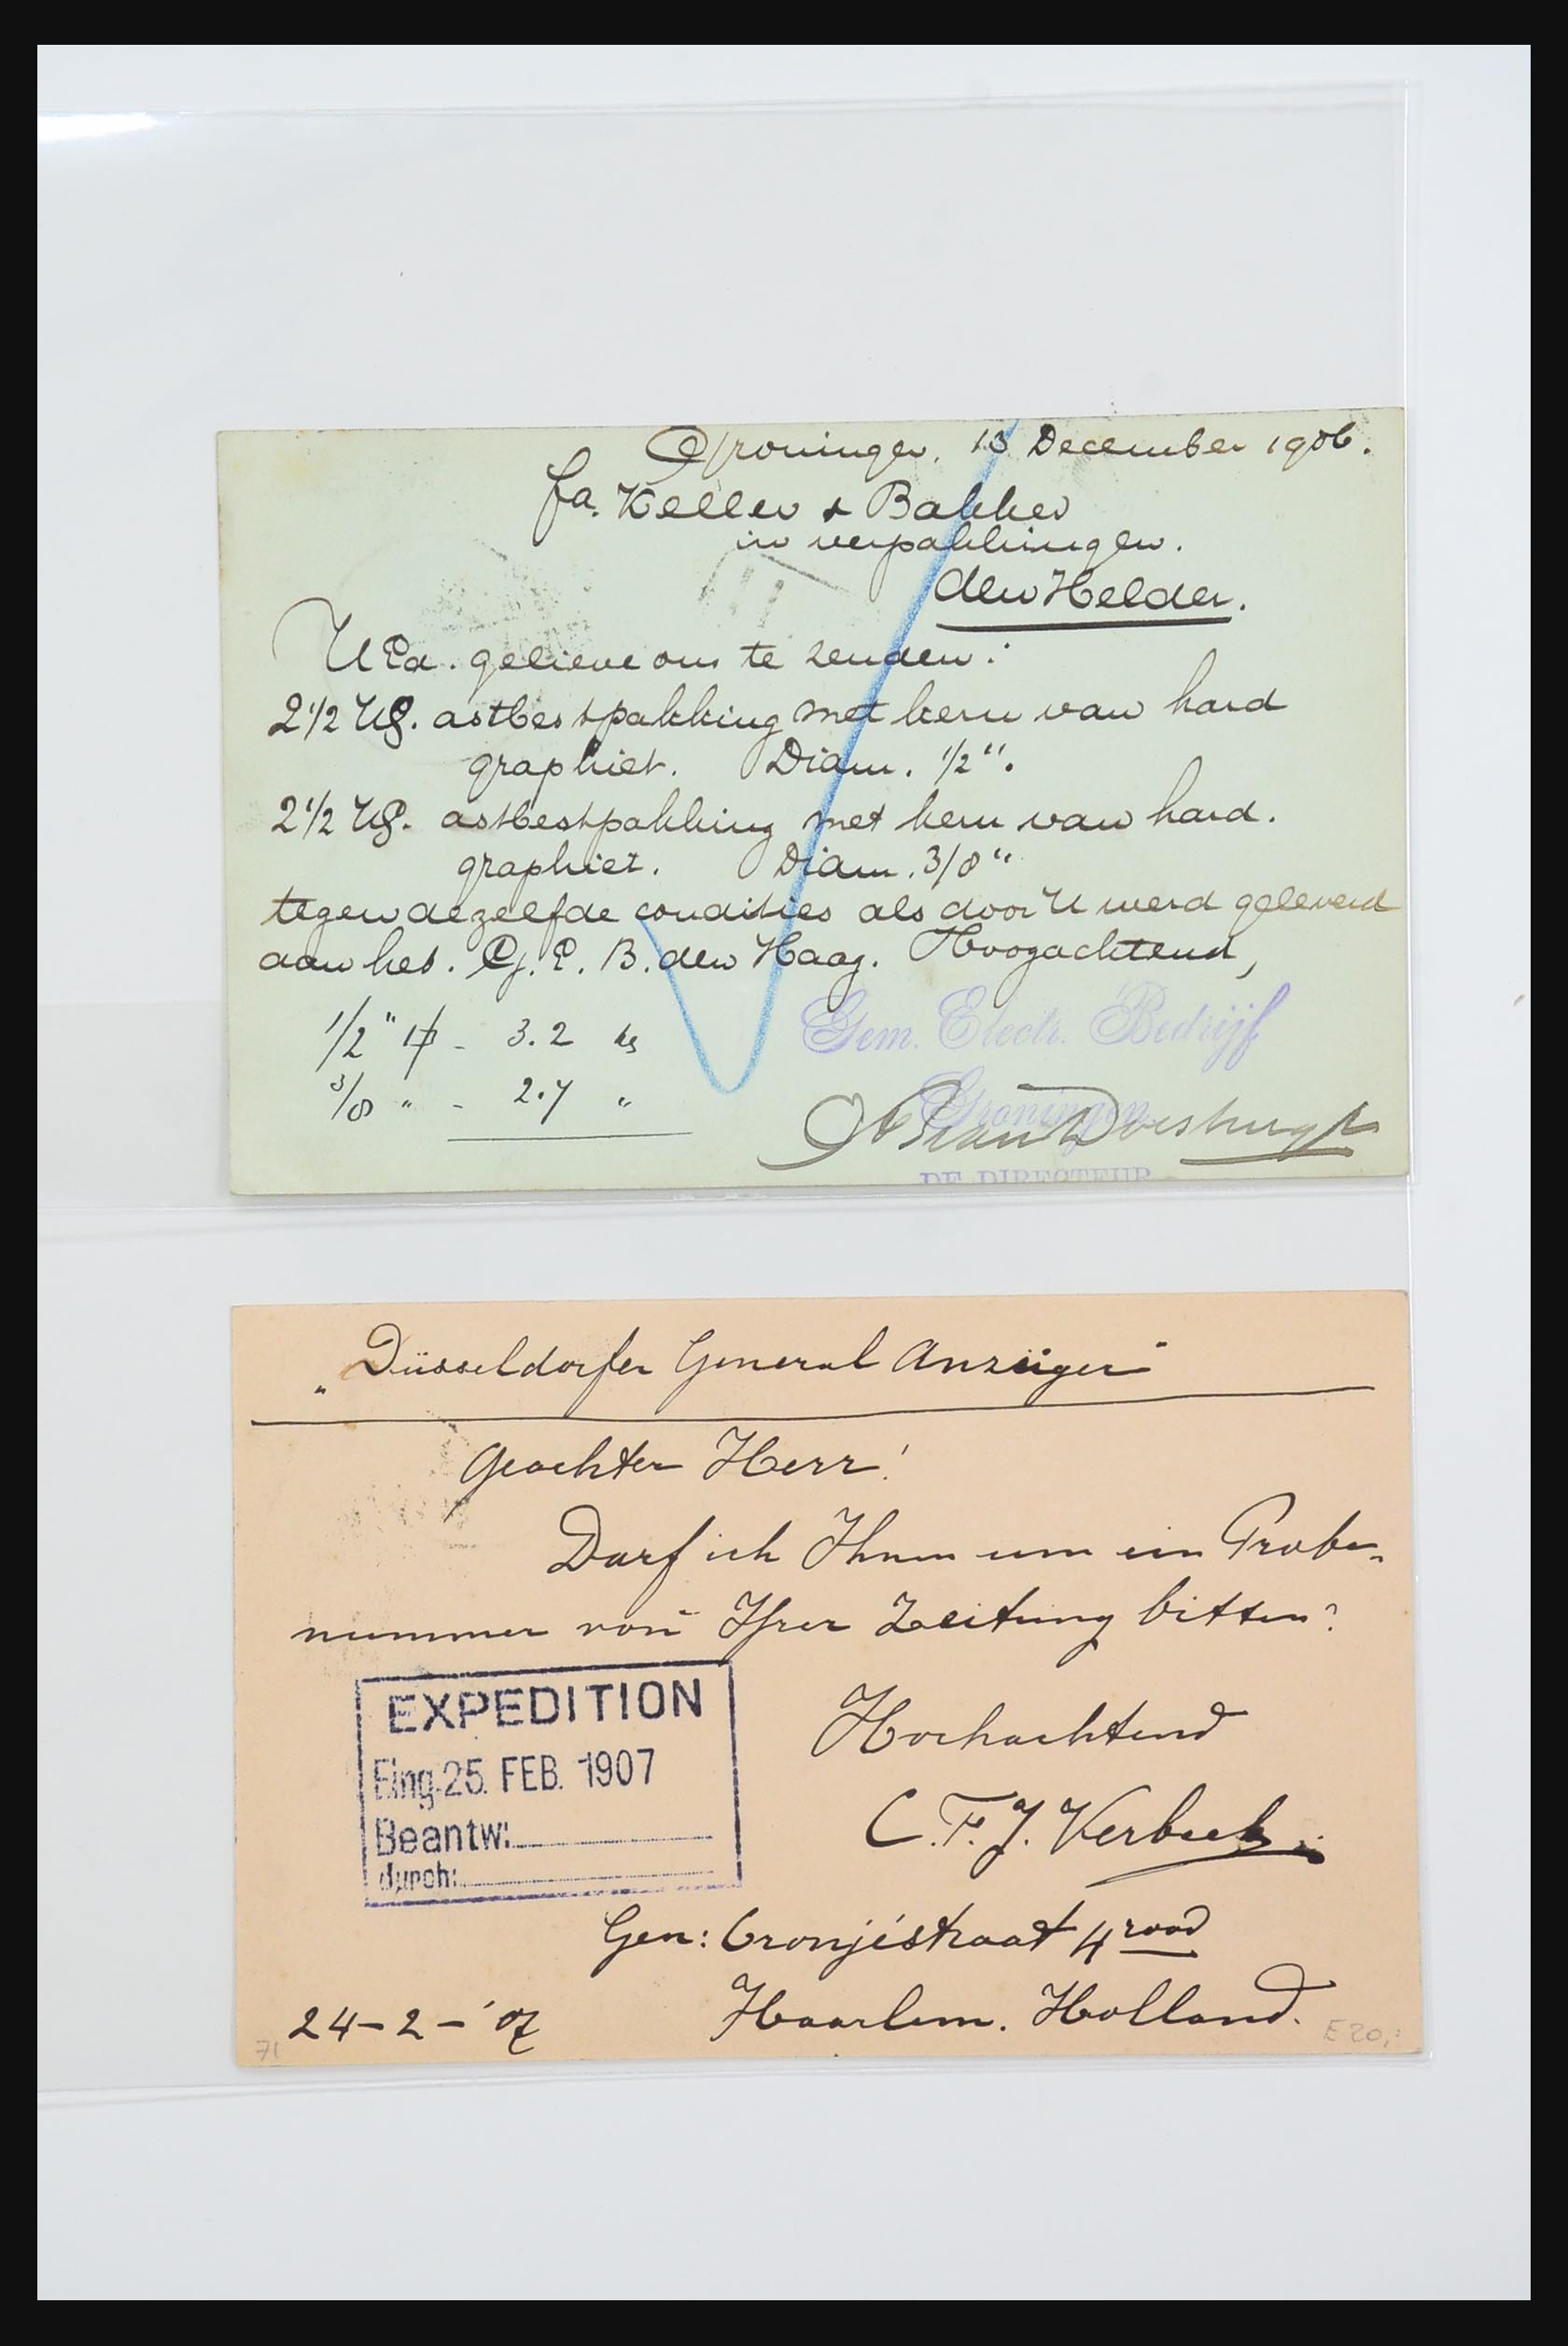 Groningen, 13 December 1906.
fa. Keller & Bakker
in verpakkingen.
den Helder.
UEd. gelieve ons te zenden:
2 1/2 KG. astbestpakking met kern van hard
graphiet. Diam. 1/2".
2 1/2 KG. astbestpakking met kern van hard.
graphiet. Diam. 3/8"
tegen dezelfde condities als door U werd geleverd
aan het. G. E. B. den Haag. Hoogachtend,
1/2" - 3.2 kg
3/8 " - 2.7 "
Gem. Electr. Bedrijf
Groningen
DE DIRECTEUR
„Düsseldorfer General Anzeiger"
Geachter Herr!
Darf ich Ihnen um ein Probe-
nummer von Ihrer Zeitung bitten?
EXPEDITION
Eing. 25. FEB. 1907
Beantw:
durch:
Hochachtend
C. F. J. Verbeek.
Gen: Cronjéstraat 4 rood
24-2-'07 Haarlem. Holland.
71 E 20,: